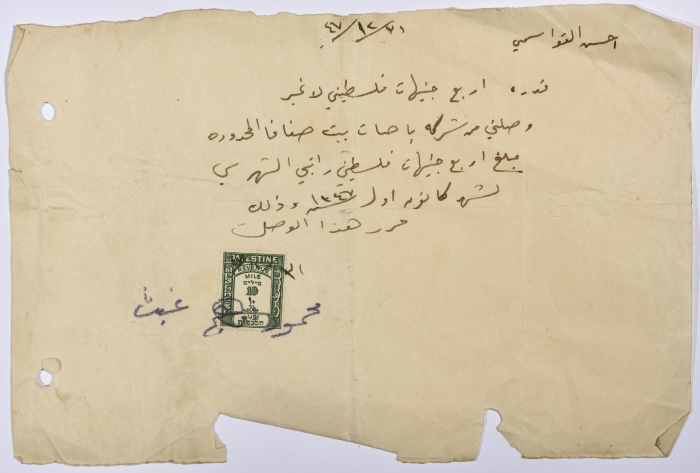 ٤٧/١٢/٣١
احسن القواسمي
قدره اربع جنيهات فلسطيني لا غير
وصلني من شركة باصات بيت صفافا المحدوده
مبلغ اربع جنيهات فلسطيني راتبي الشهري
لشهر كانون اول سنة ١٩٤٧ وذلك
حرر هذا الوصل
PALESTINE
REVENUE
MILS
מילים
10
١٠
محمود
غيث